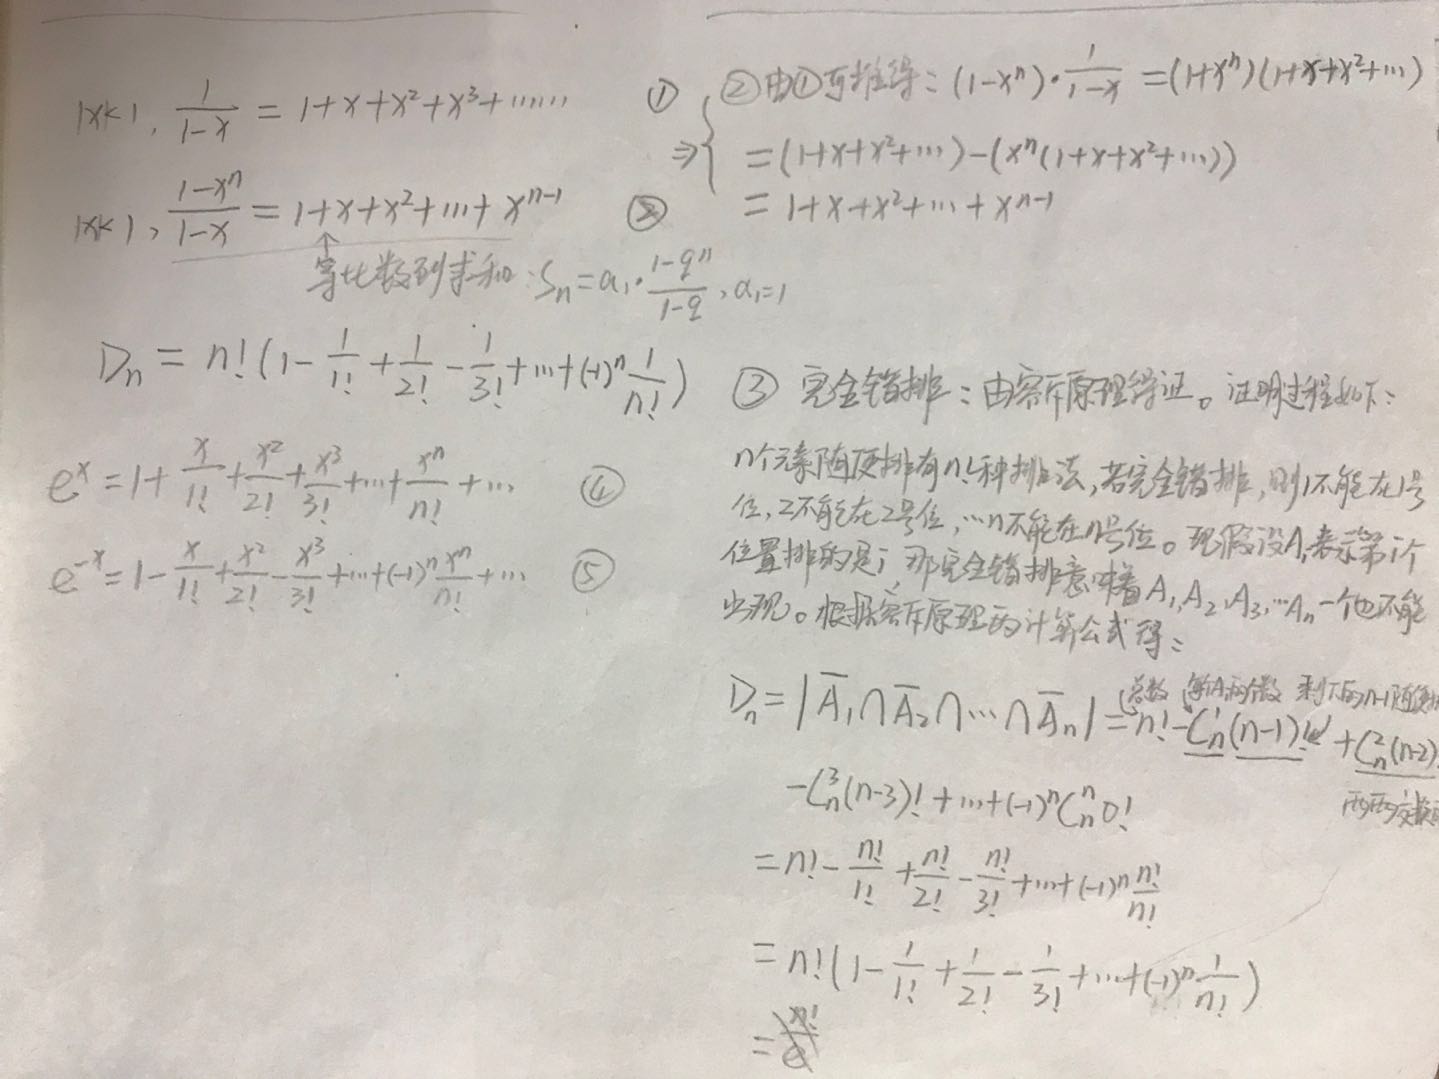 |x|<1, 1/(1-x) = 1+x+x²+x³+…… ①
|x|<1, (1-xⁿ)/(1-x) = 1+x+x²+…+xⁿ⁻¹ ②
↑
等比数列求和: Sₙ=a₁·(1-qⁿ)/(1-q), a₁=1
⇒{ ②由①可推得: (1-xⁿ)·1/(1-x) =(1+xⁿ)(1+x+x²+…)
=(1+x+x²+…)-(xⁿ(1+x+x²+…))
= 1+x+x²+…+xⁿ⁻¹
Dₙ = n!(1-1/1!+1/2!-1/3!+…+(-1)ⁿ1/n!) ③
eˣ=1+x/1!+x²/2!+x³/3!+…+xⁿ/n!+… ④
e⁻ˣ=1-x/1!+x²/2!-x³/3!+…+(-1)ⁿxⁿ/n!+… ⑤
完全错排: 由容斥原理得证。证明过程如下:
n个元素随便排有n!种排法,若完全错排,则1不能在1号
位,2不能在2号位,…n不能在n号位。现假设Aᵢ表示第i个
位置排的是i,那完全错排意味着A₁,A₂,A₃,…Aₙ一个也不能
出现。根据容斥原理的计算公式得:
总数 单A的个数 剩下的n-1随便
Dₙ=|A̅₁∩A̅₂∩…∩A̅ₙ|=n!-Cₙ¹(n-1)!+Cₙ²(n-2)
两两交换
-Cₙ³(n-3)!+…+(-1)ⁿCₙⁿ0!
=n!-n!/1!+n!/2!-n!/3!+…+(-1)ⁿn!/n!
=n!(1-1/1!+1/2!-1/3!+…+(-1)ⁿ1/n!)
=n!/e